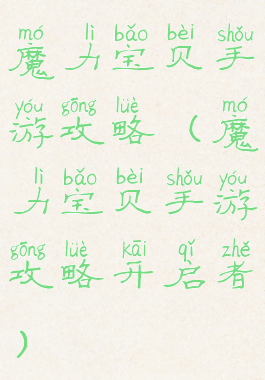 mó lì bǎo bèi shǒu
魔力宝贝手
yóu gōng lüè mó
游攻略（魔
lì bǎo bèi shǒu yóu
力宝贝手游
gōng lüè kāi qǐ zhě
攻略开启者
）